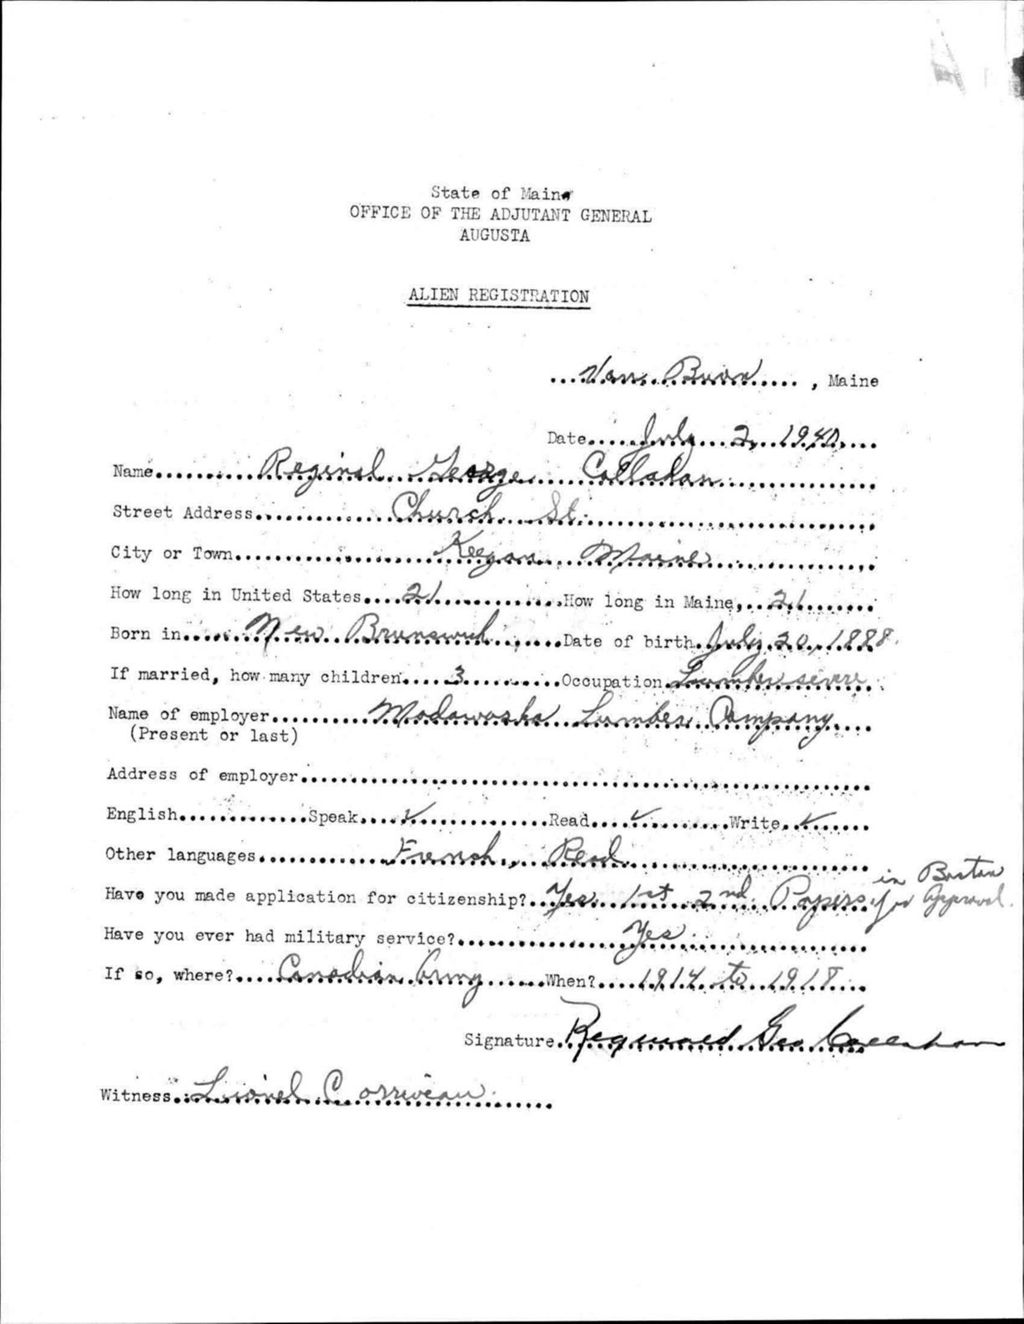 State of Maine
OFFICE OF THE ADJUTANT GENERAL
AUGUSTA
ALIEN REGISTRATION
Van Buren, Maine
Date July 2, 1940
Name Reginal George Callahan
Street Address Church St.
City or Town Keegan Maine
How long in United States 21 How long in Maine 21
Born in New Brunswick Date of birth July 20, 1888
If married, how many children 3 Occupation
Name of employer Madawaska Lumber Company
(Present or last)
Address of employer
English Speak ✓ Read ✓ Write ✓
Other languages French, Read
in Boston
Have you made application for citizenship? Yes 1st 2nd Papers for Approval.
Have you ever had military service? Yes
If so, where? Canadian Army When? 1914 to 1918
Signature Geo Callahan
Witness Lionel Corriveau